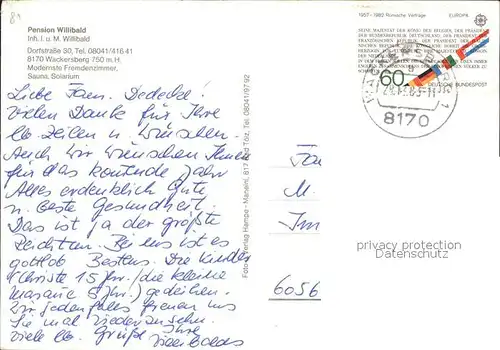 84
Pension Willibald
Inh. I. u. M. Willibald
Dorfstraße 30, Tel. 08041/416 41
8170 Wackersberg 750 m.H.
Modernste Fremdenzimmer,
Sauna, Solarium
Liebe Fam. Dedecke!
Vielen Dank für Ihre
lb. Zeilen u. Wünschen.
Auch wir wünschen Ihnen
für das kommende Jahr
Alles erdenklich Gute
u. beste Gesundheit.
Das ist ja der größte
Reichtum. Bei uns ist es
gottlob Bestens. Die Kinder
Christe 15 Jhr. (die kleine
8 Jhr.) gedeihen.
Wir jedenfalls freuen uns
Sie mal wiederzusehn.
Viele lb. Grüße Ihre
Willibalds
Foto u. Verlag Hampe - Manaini, 817 Bad Tölz, Tel. 08041/97 92
1957-1982 Römische Verträge EUROPA
SEINE MAJESTÄT DER KÖNIG DER BELGIER, DER PRÄSIDENT
DER BUNDESREPUBLIK DEUTSCHLAND, DER PRÄSIDENT DER
60
DEUTSCHE BUNDESPOST
1
8170
Fam
M.
Im
6056
privacy protection
Datenschutz